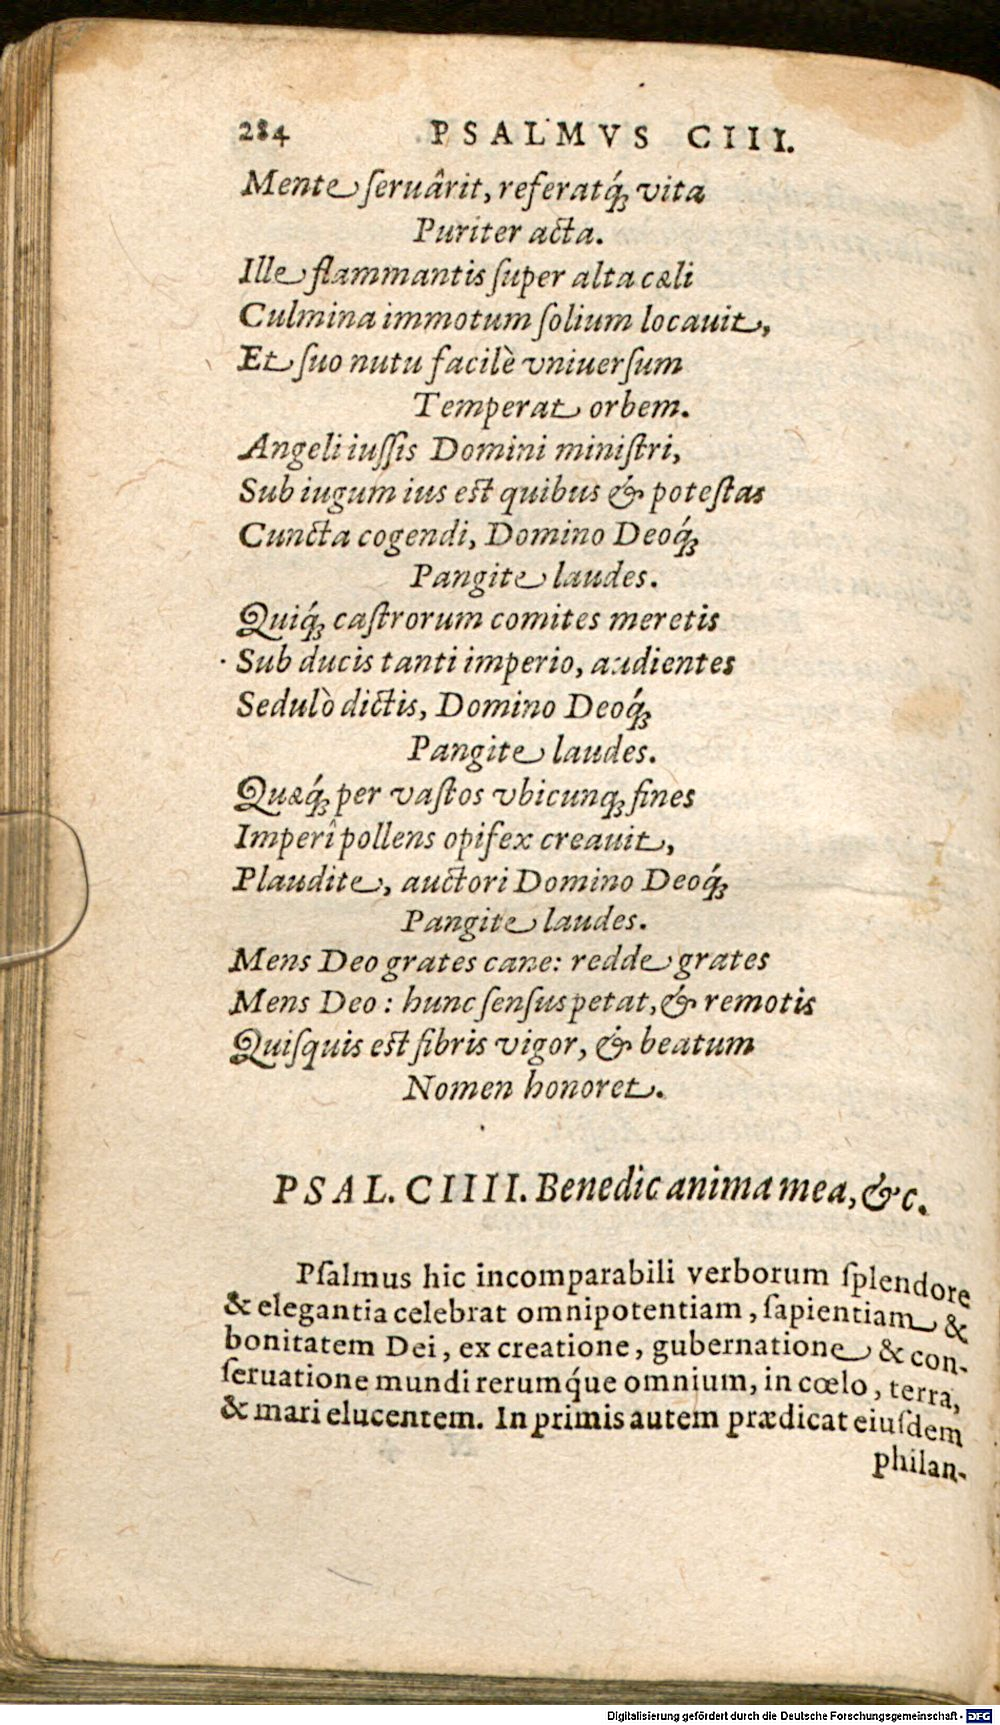 284 PSALMVS CIII.
Mente ſeruârit, referatq́ꝫ vita
Puriter acta.
Ille flammantis ſuper alta cæli
Culmina immotum ſolium locauit,
Et ſuo nutu facilè vniuerſum
Temperat orbem.
Angeli iuſſis Domini miniſtri,
Sub iugum ius est quibus & poteſtas
Cuncta cogendi, Domino Deoq́ꝫ
Pangite laudes.
Quiq́ꝫ caſtrorum comites meretis
Sub ducis tanti imperio, audientes
Sedulò dictis, Domino Deoq́ꝫ
Pangite laudes.
Quæq́ꝫ per vaſtos vbicunqꝫ fines
Imperî pollens opifex creauit,
Plaudite, auctori Domino Deoq́ꝫ
Pangite laudes.
Mens Deo grates cane: redde grates
Mens Deo: hunc ſenſus petat, & remotis
Quiſquis est fibris vigor, & beatum
Nomen honoret.
PSAL. CIIII. Benedic anima mea, &c.
Pſalmus hic incomparabili verborum ſplendore
& elegantia celebrat omnipotentiam, ſapientiam &
bonitatem Dei, ex creatione, gubernatione & con-
ſeruatione mundi rerumq́ue omnium, in cœlo, terra,
& mari elucentem. In primis autem prædicat eiuſdem
philan-
Digitalisierung gefördert durch die Deutsche Forschungsgemeinschaft - DFG